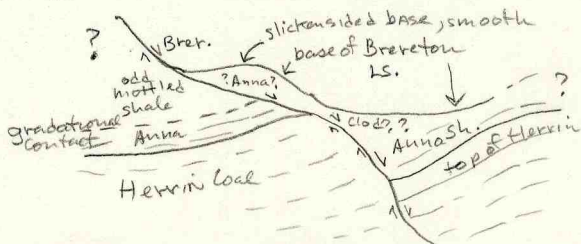 slickensided base, smooth
base of Brereton
LS.
?
Brer.
?
?Anna?
odd
mottled
shale
gradational
contact
Anna
Clod??
Anna Sh.
top of Herrin
Herrin Coal